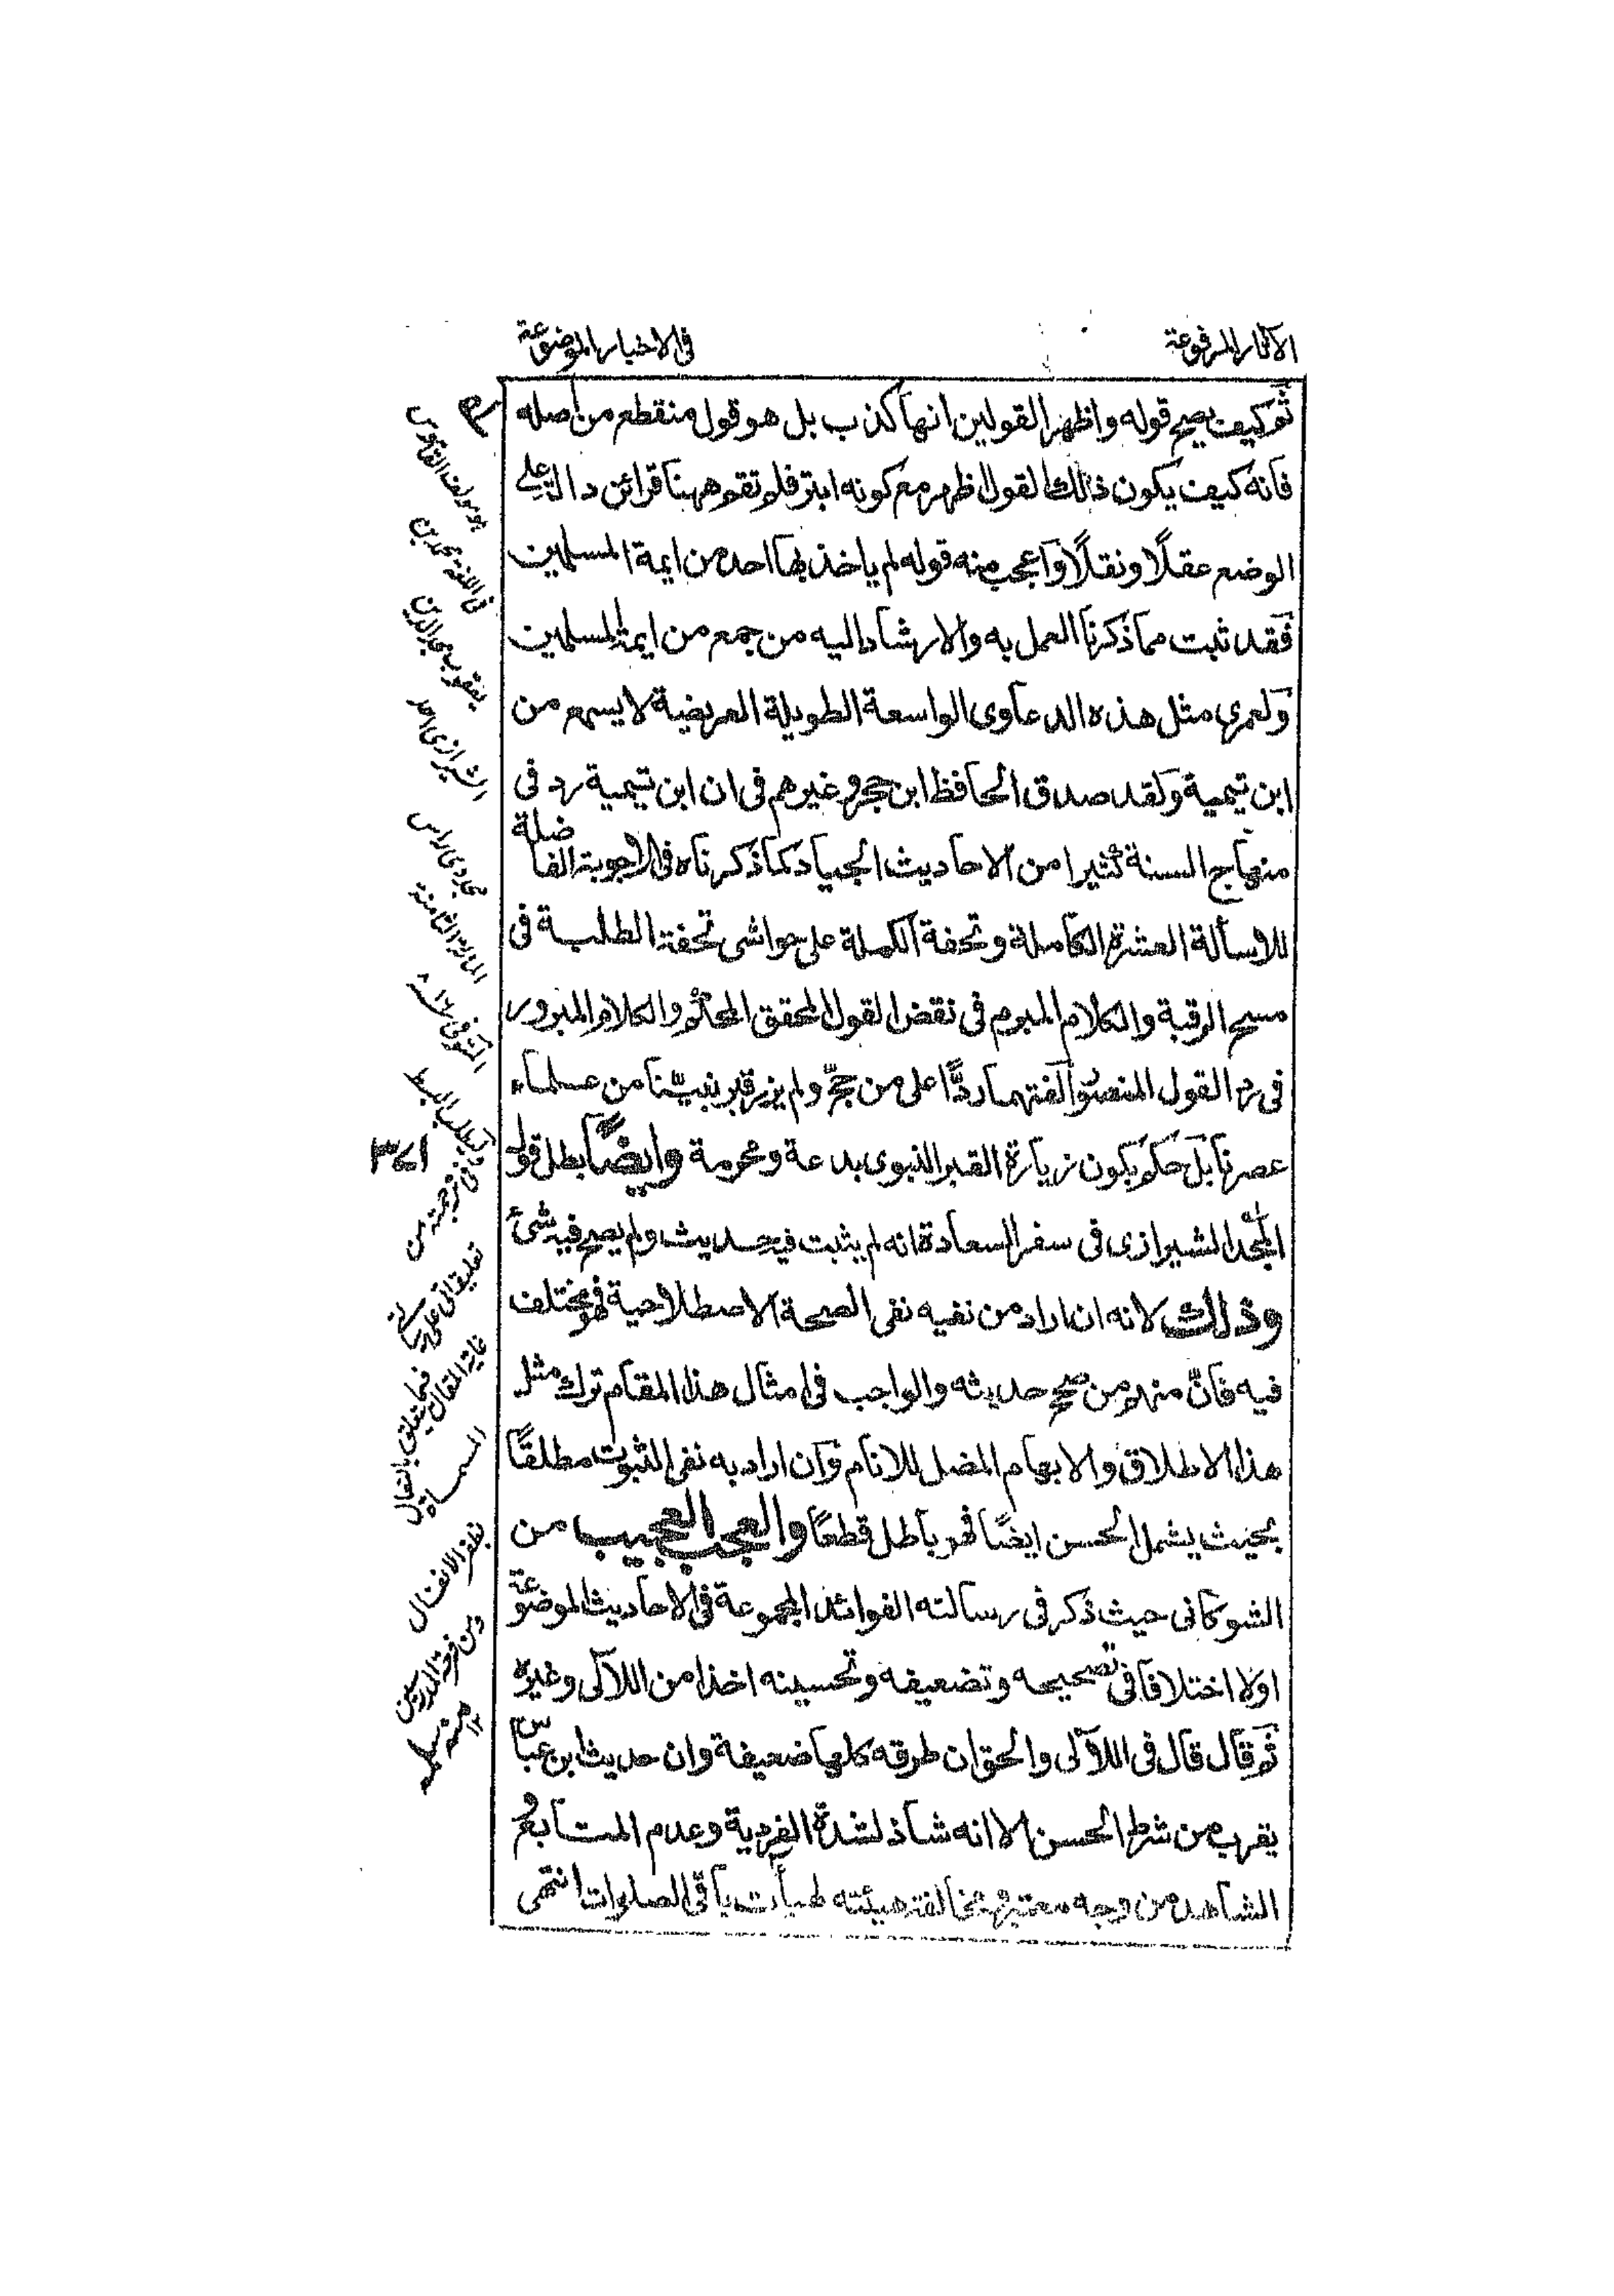 الآثار المرفوعة
في الاخبار الموضوعة
ثم كيف يصح قوله واظهر القولين انها كذب بل هو قول منقطع من اصله
فانه كيف يكون ذلك القول اظهر مع كونه ابتر فلم تقم ههنا قرائن دالة على
الوضع عقلًا ونقلًا واعجب منه قوله لم ياخذ بها احد من ايمة المسلمين
فقد ثبت مما ذكرنا العمل به والارشاد اليه من جمع من ايمة المسلمين
ولعمري مثل هذه الدعاوى الواسعة الطويلة العريضة لا يسمع من
ابن تيمية ولقد صدق الحافظ ابن حجر وغيرهم في ان ابن تيمية رد في
منهاج السنة كثيرا من الاحاديث الجياد كما ذكرناه في الاجوبة الفاضلة
للاسألة العشرة الكاملة وتحفة الكملة على حواشى تحفة الطلبة في
مسح الرقبة والكلام المبرم في نقض القول المحقق المحكم والكلام المبرور
في رد القول المنصور الفتهما ردًّا على من حجّ ولم يزر قبر نبيّنا من علماء
عصرنا بل حكم بكون زيارة القبر النبوى بدعة ومحرمة وايضًا بطل قول
المجد الشيرازى في سفر السعادة انه لم يثبت فيه حديث ولم يصح فيه شئ
وذلك لانه ان اراد من نفيه نفى الصحة الاصطلاحية فهو مختلف
فيه فانّ منهم من صحح حديثه والواجب في امثال هذا المقام ترك مثل
هذا الاطلاق والابهام المضل للانام وان اراد به نفى الثبوت مطلقًا
بحيث يشمل الحسن ايضًا فهو باطل قطعًا والعجب العجيب من
الشوكانى حيث ذكر في رسالته الفوائد المجموعة في الاحاديث الموضوعة
اولا اختلافا في تصحيحه وتضعيفه وتحسينه اخذا من اللآلى وغيره
ثم قال قال في اللآلى والحق ان طرقه كلها ضعيفة وان حديث ابن عباس
يقرب من شرط الحسن الا انه شاذ لشدة الفردية وعدم المتابع و
الشاهد من وجه معتبر ومخالفة هيئته لهيأت باقى الصلوات انتهى
هو مؤلف القاموس
في اللغة محمد بن
يعقوب مجد الدين
الشيرازى احد
مجددى راس
المائة الثامنة
ترجمته من
تعليقاتى على رسالتى
غاية المقال
فيما يتعلق بالنعال
المسماة
بظفر الانفال
ومن فرحة المدرسين
منه سلمه